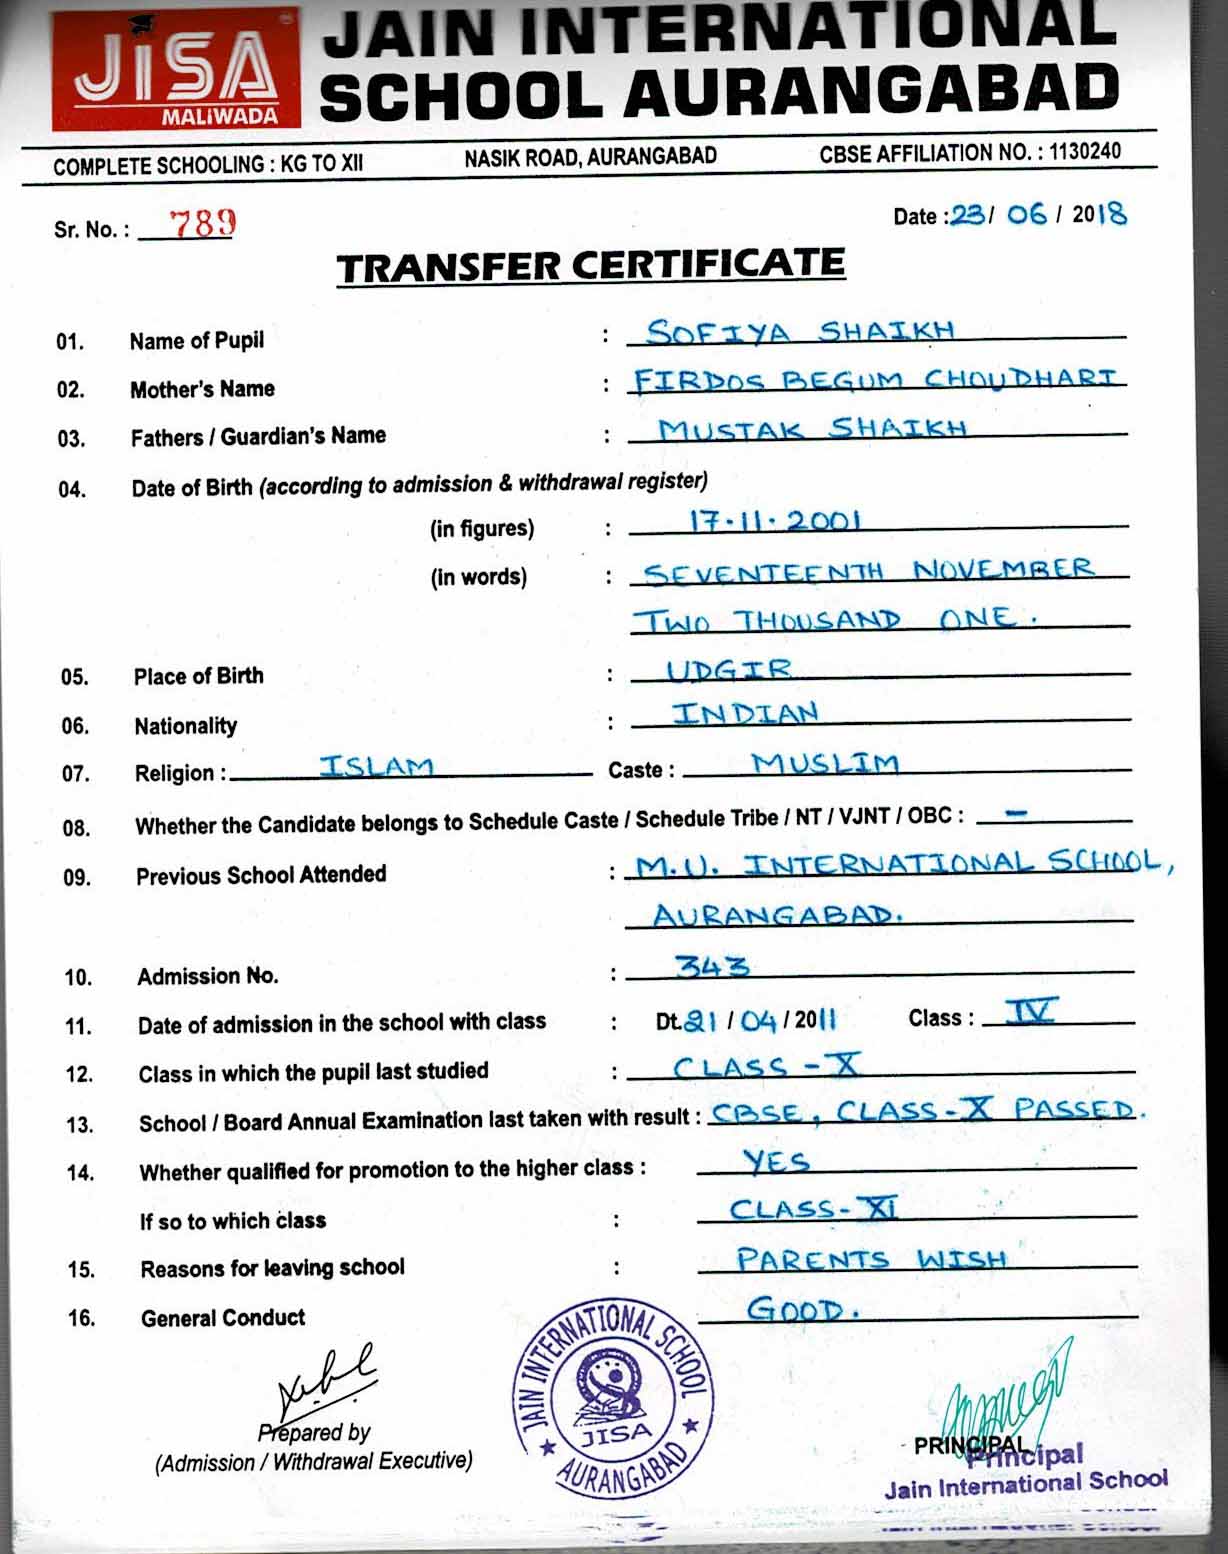 JiSA
MALIWADA
JAIN INTERNATIONAL
SCHOOL AURANGABAD
COMPLETE SCHOOLING : KG TO XII NASIK ROAD, AURANGABAD CBSE AFFILIATION NO. : 1130240
Sr. No. : 789 Date : 23/ 06 / 2018
TRANSFER CERTIFICATE
01. Name of Pupil : SOFIYA SHAIKH
02. Mother's Name : FIRDOS BEGUM CHOUDHARI
03. Fathers / Guardian's Name : MUSTAK SHAIKH
04. Date of Birth (according to admission & withdrawal register)
(in figures) : 17.11.2001
(in words) : SEVENTEENTH NOVEMBER
TWO THOUSAND ONE.
05. Place of Birth : UDGIR
06. Nationality : INDIAN
07. Religion : ISLAM Caste : MUSLIM
08. Whether the Candidate belongs to Schedule Caste / Schedule Tribe / NT / VJNT / OBC : –
09. Previous School Attended : M.U. INTERNATIONAL SCHOOL,
AURANGABAD.
10. Admission No. : 343
11. Date of admission in the school with class : Dt. 21 / 04 / 2011 Class : IV
12. Class in which the pupil last studied : CLASS - X
13. School / Board Annual Examination last taken with result : CBSE, CLASS-X PASSED.
14. Whether qualified for promotion to the higher class : YES
If so to which class : CLASS- XI
15. Reasons for leaving school : PARENTS WISH
16. General Conduct GOOD.
JAIN INTERNATIONAL SCHOOL
JISA
★ AURANGABAD ★
Prepared by
(Admission / Withdrawal Executive)
PRINCIPAL
Principal
Jain International School